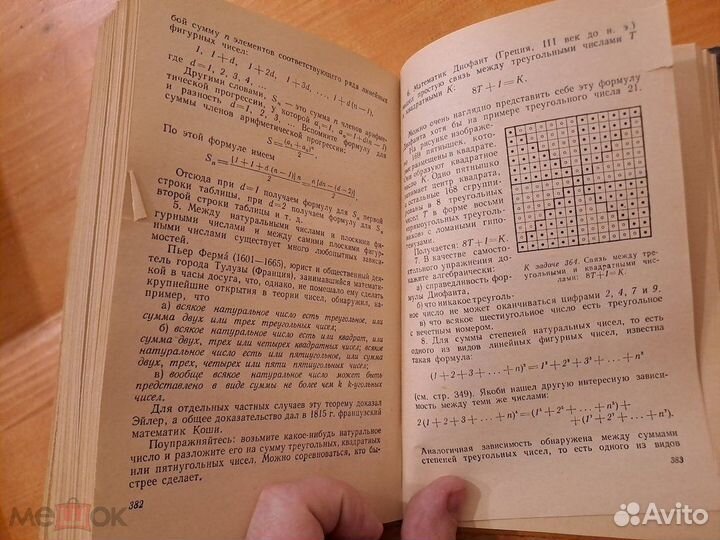 бой сумму n элементов соответствующего ряда линейных
фигурных чисел:
1, 1+d, 1+2d, 1+3d, ..., 1+d(n−1),
где d=1, 2, 3, 4, ...
Другими словами, Sₙ — это сумма n членов арифме-
тической прогрессии, у которой a₁=1, aₙ=1+d(n−1)
и разность d=1, 2, 3, ... Вспомните формулу для
суммы членов арифметической прогрессии:
S=(a₁+aₙ)n/2.
По этой формуле имеем
Sₙ=[1+1+d(n−1)]n/2=n[dn−(d−2)]/2.
Отсюда при d=1 получаем формулу для Sₙ первой
строки таблицы, при d=2 получаем формулу для Sₙ
второй строки таблицы и т. д.
5. Между натуральными числами и плоскими фи-
гурными числами и между самими плоскими фигур-
ными числами существует много любопытных зависи-
мостей.
Пьер Ферма́ (1601—1665), юрист и общественный дея-
тель города Тулузы (Франция), занимавшийся математи-
кой в часы досуга, что, однако, не помешало ему сделать
крупнейшие открытия в теории чисел, обнаружил, на-
пример, что
а) всякое натуральное число есть треугольное, или
сумма двух или трех треугольных чисел;
б) всякое натуральное число есть или квадрат, или
сумма двух, трех или четырех квадратных чисел; всякое
натуральное число есть или пятиугольное, или сумма
двух, трех, четырех или пяти пятиугольных чисел;
в) вообще всякое натуральное число может быть
представлено в виде суммы не более чем k k-угольных
чисел.
Для отдельных частных случаев эту теорему доказал
Эйлер, а общее доказательство дал в 1815 г. французский
математик Коши.
Поупражняйтесь: возьмите какое-нибудь натуральное
число и разложите его на сумму треугольных, квадратных
или пятиугольных чисел. Можно соревноваться, кто бы-
стрее сделает.
382
6. Математик Диофант (Греция, III век до н. э.)
простую связь между треугольными числами T
квадратными K:
8T+1=K.
Можно очень наглядно представить себе эту формулу
Диофанта хотя бы на примере треугольного числа 21.
На рисунке изображе-
169 пятнышек, кото-
размещены в квадрате.
образуют квадратное
число K. Одно пятнышко
центр квадрата,
остальные 168 сгруппи-
в 8 треугольных
чисел T в форме восьми
прямоугольных треуголь-
с ломаными гипо-
тенузами.
Получается: 8T+1=K.
7. В качестве самосто-
ятельного упражнения до-
кажите алгебраически:
а) справедливость фор-
мулы Диофанта,
б) что никакое треуголь-
ное число не может оканчиваться цифрами 2, 4, 7 и 9.
в) что всякое шестиугольное число есть треугольное
с нечетным номером.
К задаче 364. Связь между тре-
угольными и квадратными чис-
лами: 8T+1=K.
8. Для суммы степеней натуральных чисел, то есть
одного из видов линейных фигурных чисел, известна
такая формула:
(1+2+3+...+n)²=1³+2³+3³+...+n³
(см. стр. 349). Якоби нашел другую интересную зависи-
мость между теми же числами:
2(1+2+3+...+n)⁴=(1⁵+2⁵+...+n⁵)+
+(1⁷+2⁷+...+n⁷).
Аналогичная зависимость обнаружена между суммами
степеней треугольных чисел, то есть одного из видов
383
мешок
Avito